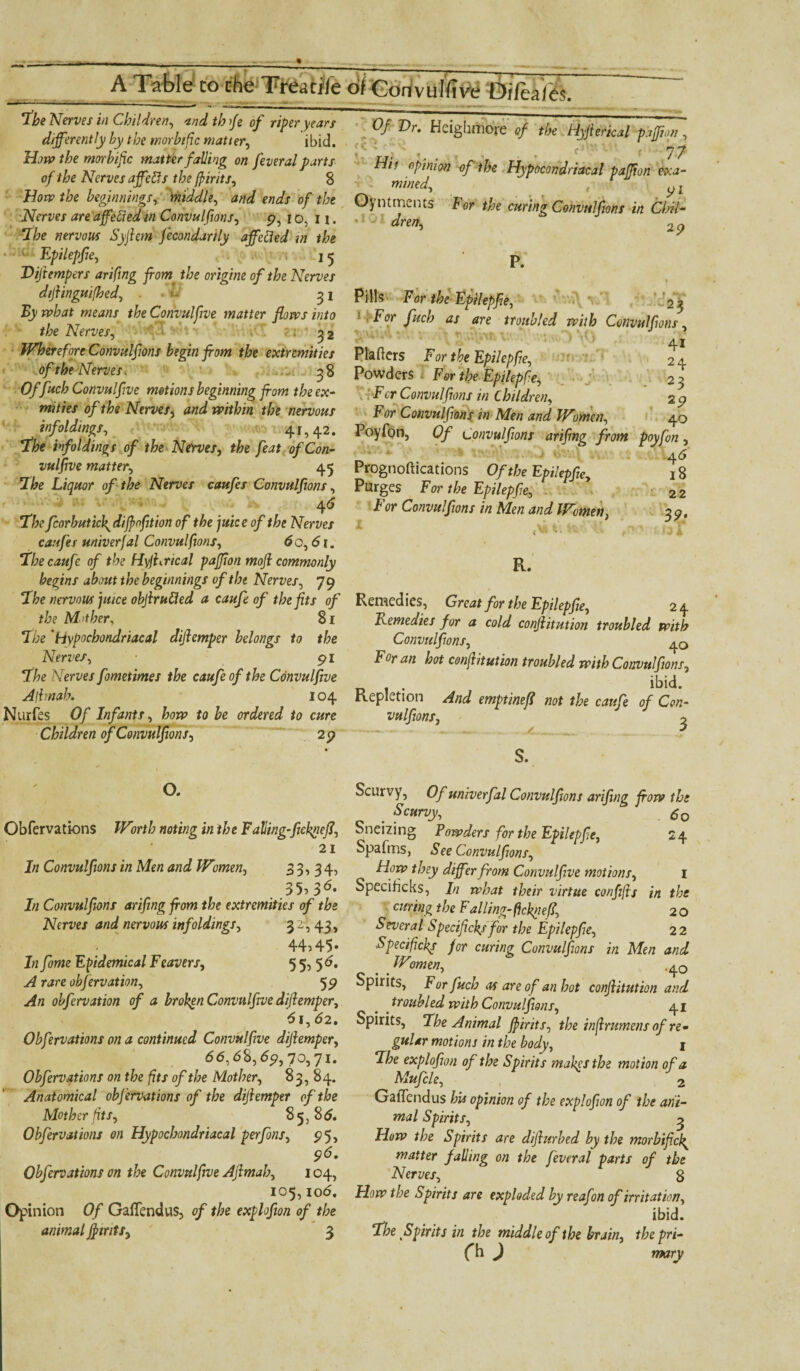 A Table to the Treatise of Convulsive Diseases.
The Nerves in Children, and thoſe of riper years
differently by the morbific matter, ibid.
How the morbific matter falling on ſeveral parts
of the Nerves affects the ſpirits, 8
How the beginnings, middle, and ends of the
Nerves are affected in Convulſions, 9, 10, 11.
The nervous Syſtem ſecondarily affected in the
Epilepſie, 15
Diſtempers ariſing from the origine of the Nerves
diſtinguiſhed, 31
By what means the Convulſive matter flows into
the Nerves, 32
Wherefore Convulſions begin from the extremities
of the Nerves. 38
Of ſuch Convulſive motions beginning from the ex-
mities of the Nerves, and within the nervous
infoldings, 41, 42.
The infoldings of the Nerves, the ſeat of Con-
vulſive matter, 45
The Liquor of the Nerves cauſes Convulſions,
46
The ſcorbutick diſpoſition of the juice of the Nerves
cauſes univerſal Convulſions, 60, 61.
The cauſe of the Hyſterical paſſion moſt commonly
begins about the beginnings of the Nerves, 79
The nervous juice obſtructed a cauſe of the fits of
the Mother, 81
The Hypochondriacal diſtemper belongs to the
Nerves, 91
The Nerves ſometimes the cauſe of the Convulſive
Aſthmah. 104
Nurſes Of Infants, how to be ordered to cure
Children of Convulſions, 29
O.
Obſervations Worth noting in the Falling-ſickneſſ,
21
In Convulſions in Men and Women, 33, 34,
35, 36.
In Convulſions ariſing from the extremities of the
Nerves and nervous infoldings, 32, 43,
44, 45.
In ſome Epidemical Feavers, 55, 56.
A rare obſervation, 59
An obſervation of a broken Convulſive diſtemper,
61, 62.
Obſervations on a continued Convulſive diſtemper,
66, 68, 69, 70, 71.
Obſervations on the fits of the Mother, 83, 84.
Anatomical obſervations of the diſtemper of the
Mother fits, 85, 86.
Obſervations on Hypochondriacal perſons, 95,
96.
Obſervations on the Convulſive Aſtmah, 104,
105, 106.
Opinion Of Gaſſendus, of the exploſion of the
animal ſpirits, 3
Of Dr. Heighmore of the Hyſterical paſſion,
77
His opinion of the Hypocondriacal paſſion exa-
mined, 91
Oyntments For the curing Convulſions in Chil-
dren, 29
P.
Pills For the Epilepſie, 23
For ſuch as are troubled with Convulſions,
41
Plaſters For the Epilepſie, 24
Powders For the Epilepſie, 23
For Convulſions in Children, 29
For Convulſions in Men and Women, 40
Poyſon, Of Convulſions ariſing from poyſon,
46
Prognoſtications Of the Epilepſie, 18
Purges For the Epilepſie, 22
For Convulſions in Men and Women, 39.
R.
Remedies, Great for the Epilepſie, 24
Remedies for a cold conſtitution troubled with
Convulſions, 40
For an hot conſtitution troubled with Convulſions,
ibid.
Repletion And emptineſſ not the cauſe of Con-
vulſions, 3
S.
Scurvy, Of univerſal Convulſions ariſing from the
Scurvy, 60
Sneizing Powders for the Epilepſie, 24
Spaſms, See Convulſions,
How they differ from Convulſive motions, 1
Specificks, In what their virtue conſiſts in the
curing the Falling-ſickneſſ, 20
Several Specificks for the Epilepſie, 22
Specificks for curing Convulſions in Men and
Women, 40
Spirits, For ſuch as are of an hot conſtitution and
troubled with Convulſions, 41
Spirits, The Animal ſpirits, the inſtrumens of re-
gular motions in the body, 1
The exploſion of the Spirits makes the motion of a
Muſcle, 2
Gaſſendus his opinion of the exploſion of the ani-
mal Spirits, 3
How the Spirits are diſturbed by the morbifick
matter falling on the ſeveral parts of the
Nerves, 8
How the Spirits are exploded by reaſon of irritation,
ibid.
The Spirits in the middle of the brain, the pri-
(h) mary